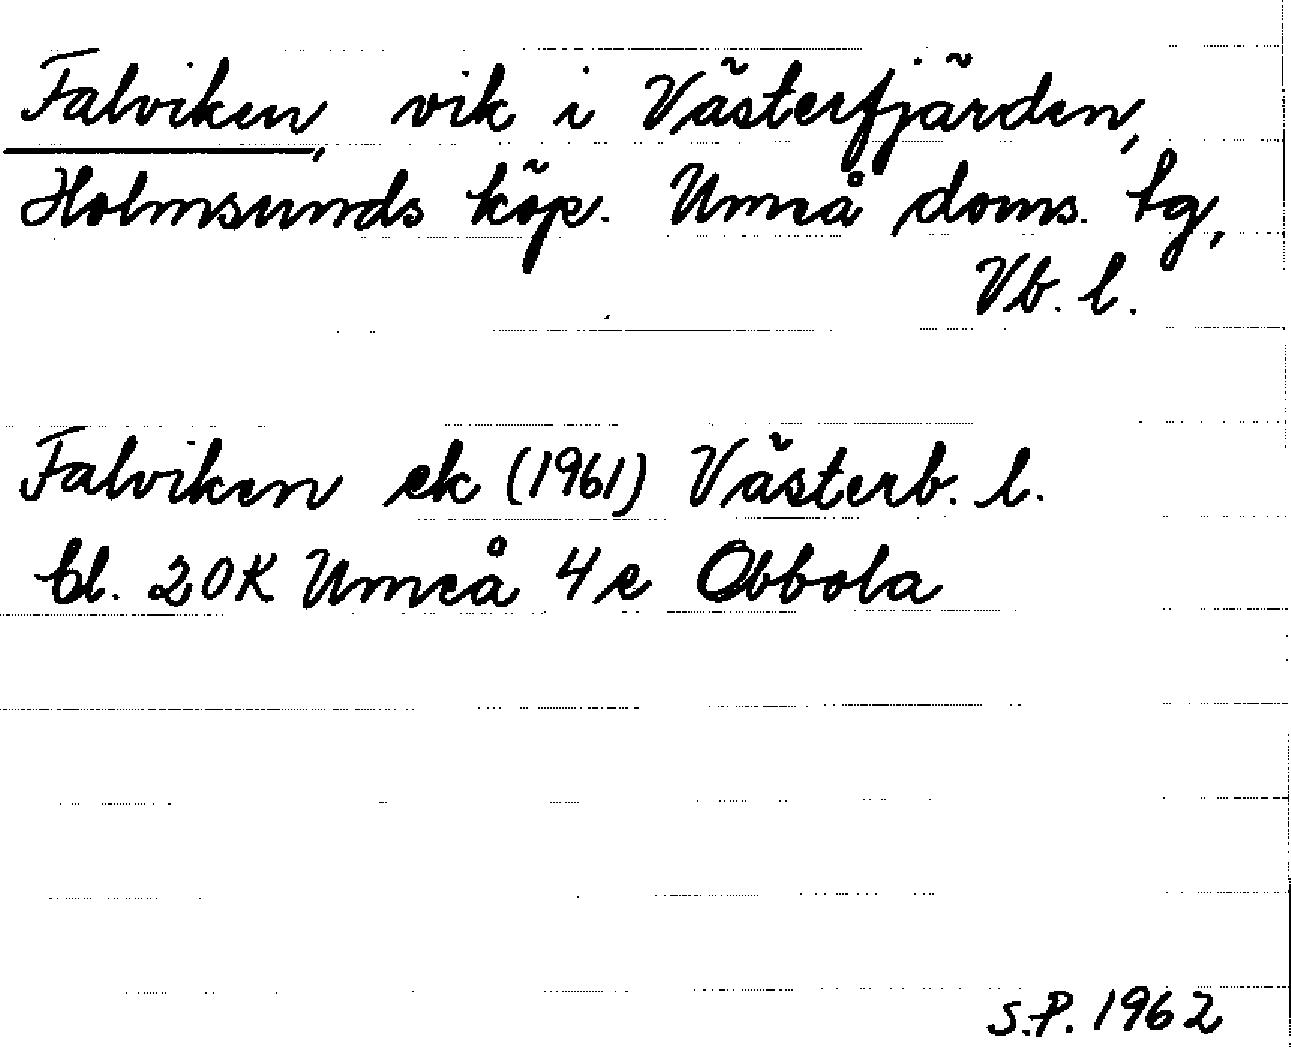 Falviken, vik i Västerfjärden,
Holmsunds köp. Umeå doms. tg,
Vb. l.
Falviken ek (1961) Västerb. l.
bl. 20K Umeå 4e Obbola
S.P. 1962